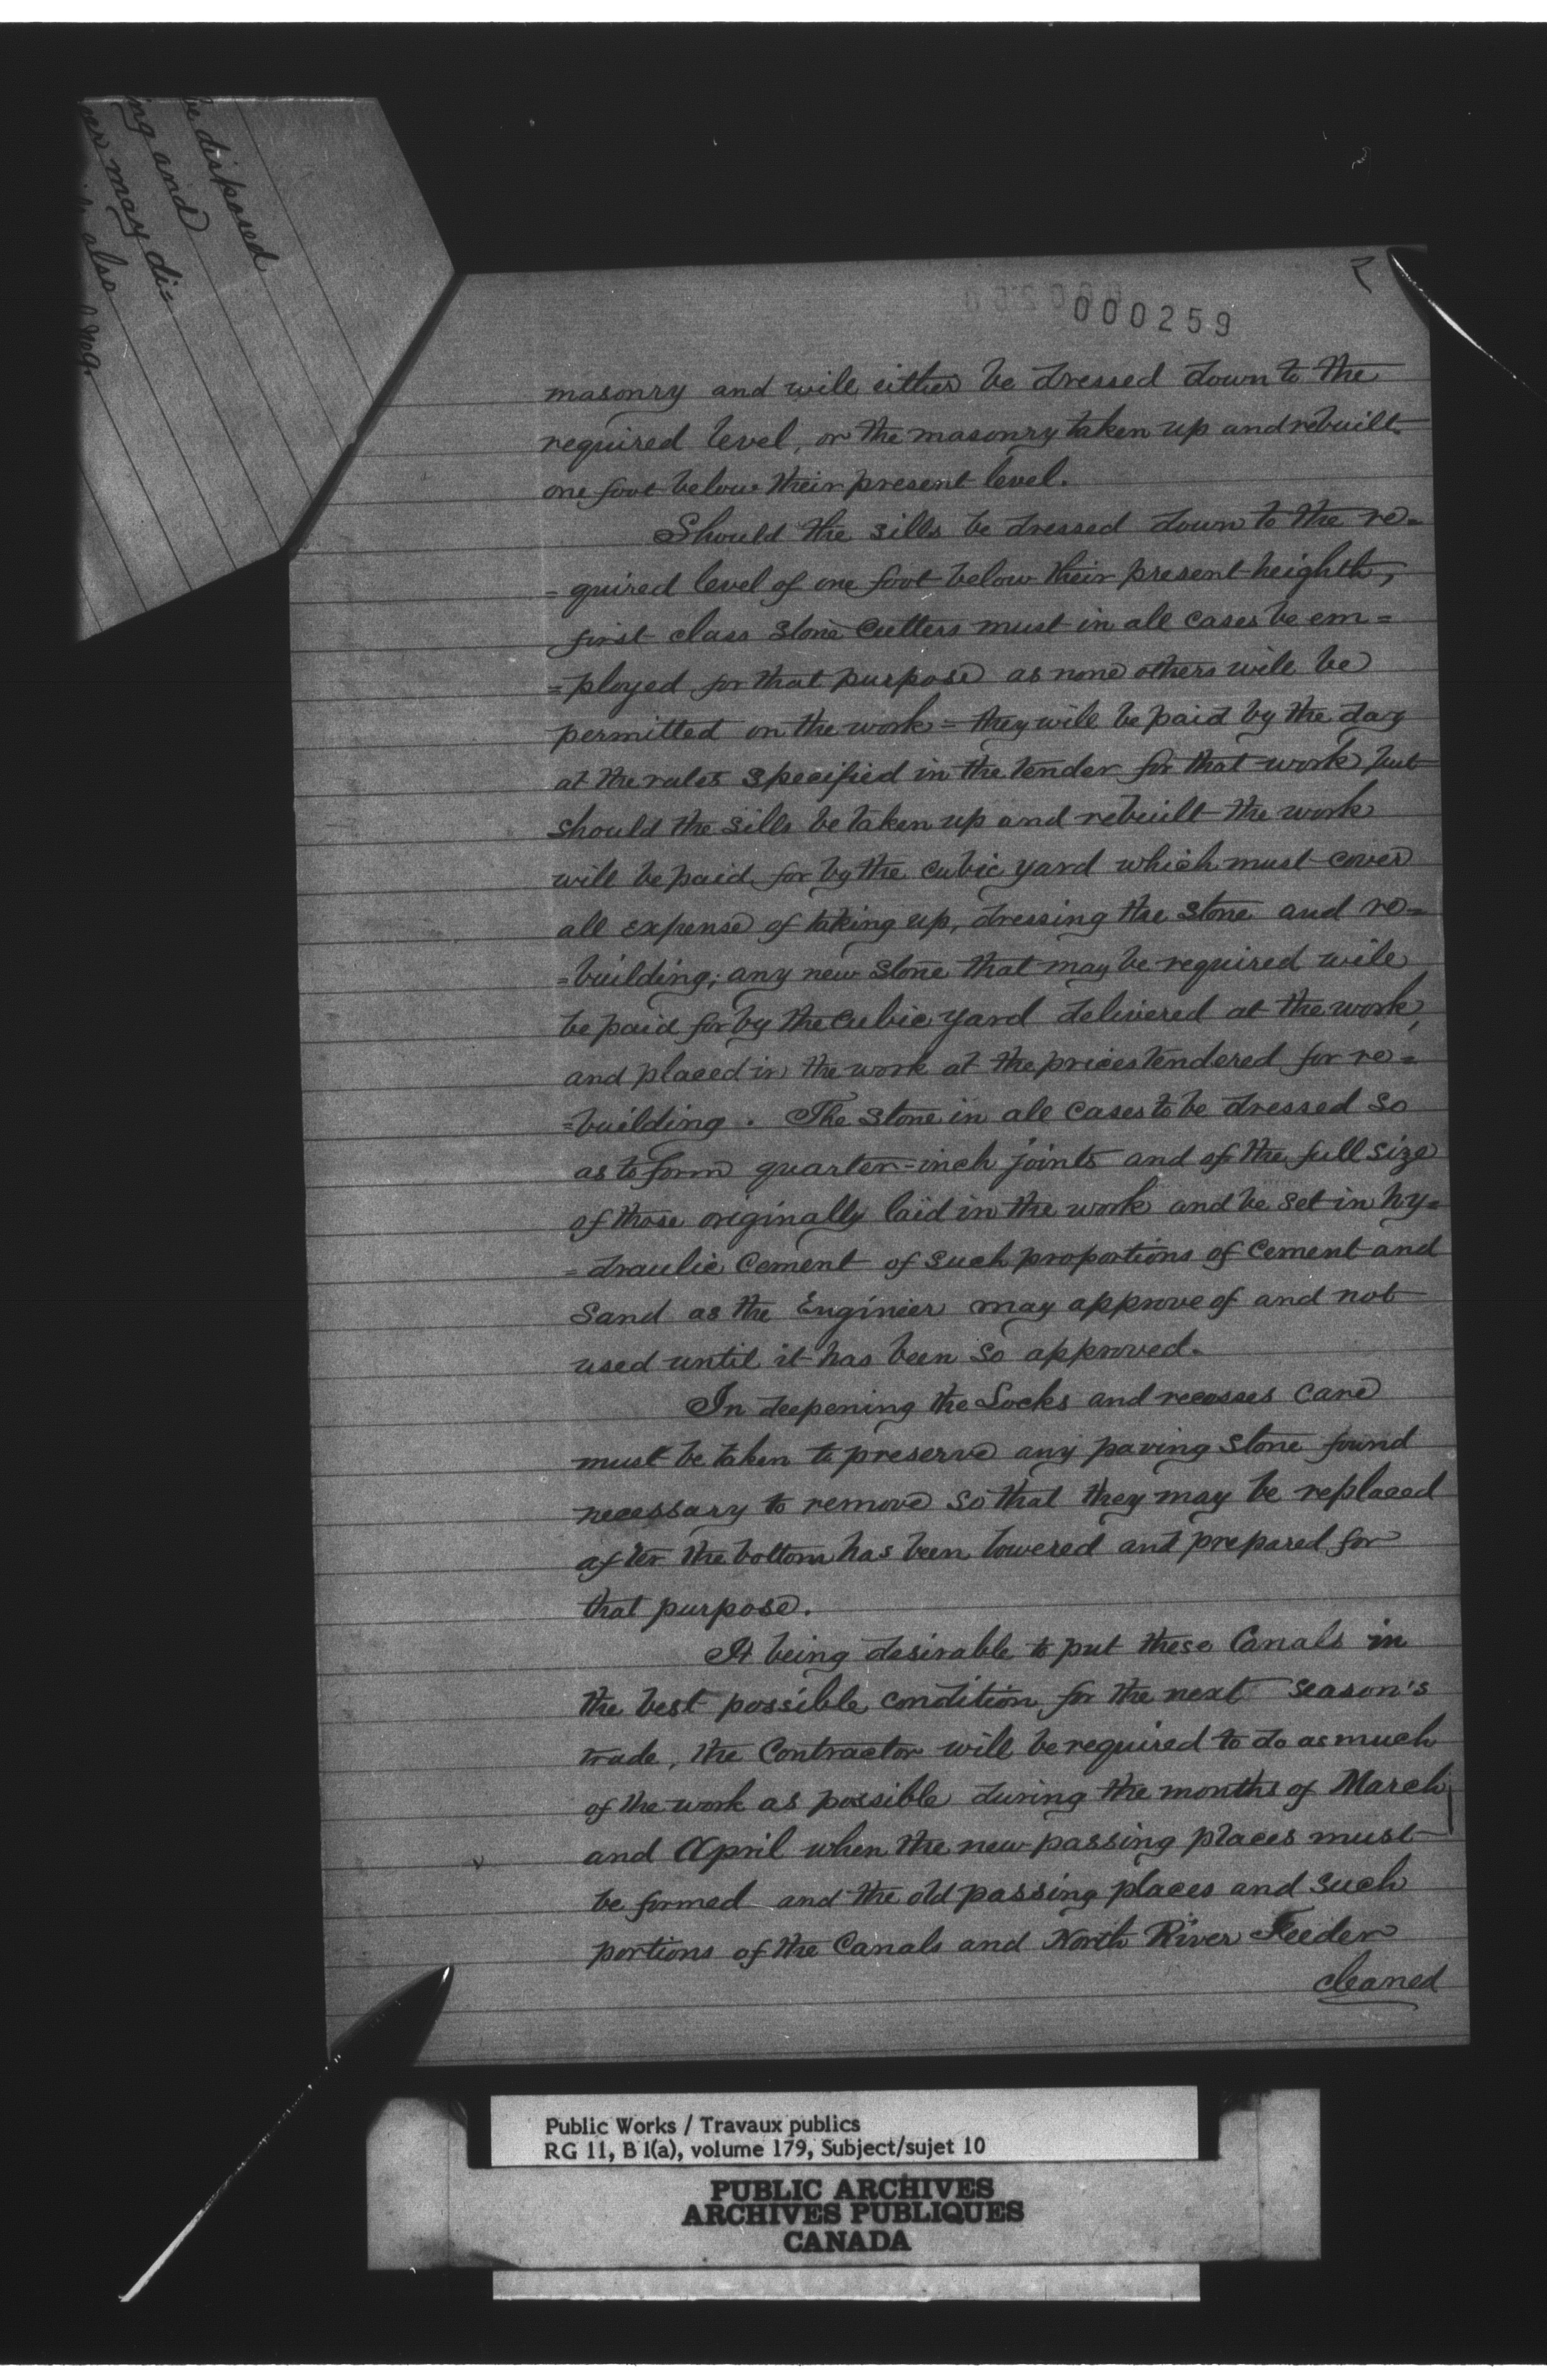 be disposed
ng and
eer may di=
also
2
000259
masonry and will either be dressed down to the
required level, or the masonry taken up and rebuilt
one foot below their present level.
Should the sills be dressed down to the re=
=quired level of one foot below their present heighth,
first class stone cutters must in all cases be em=
=ployed for that purpose as none others will be
permitted on the work = they will be paid by the day
at the rates specified in the tender for that work but
should the sills be taken up and rebuilt the work
will be paid for by the cubic yard which must cover
all expense of taking up, dressing the stone and re=
=building; any new stone that may be required will
be paid for by the cubic yard delivered at the work,
and placed in the work at the prices tendered for re=
=building. The stone in all cases to be dressed so
as to form quarter-inch joints and of the full size
of those originally laid in the work and be set in hy=
=draulic Cement of such proportions of Cement and
Sand as the Engineer may approve of and not
used until it has been so approved.
In deepening the Locks and recesses care
must be taken to preserve any paving stone found
necessary to remove so that they may be replaced
after the bottom has been lowered and prepared for
that purpose.
It being desirable to put these Canals in
the best possible condition for the next season's
trade, the Contractor will be required to do as much
of the work as possible during the months of March
and April when the new passing places must
be formed and the old passing places and such
portions of the Canals and North River Feeder
cleaned
Public Works / Travaux publics
RG 11, B 1(a), volume 179, Subject/sujet 10
PUBLIC ARCHIVES
ARCHIVES PUBLIQUES
CANADA